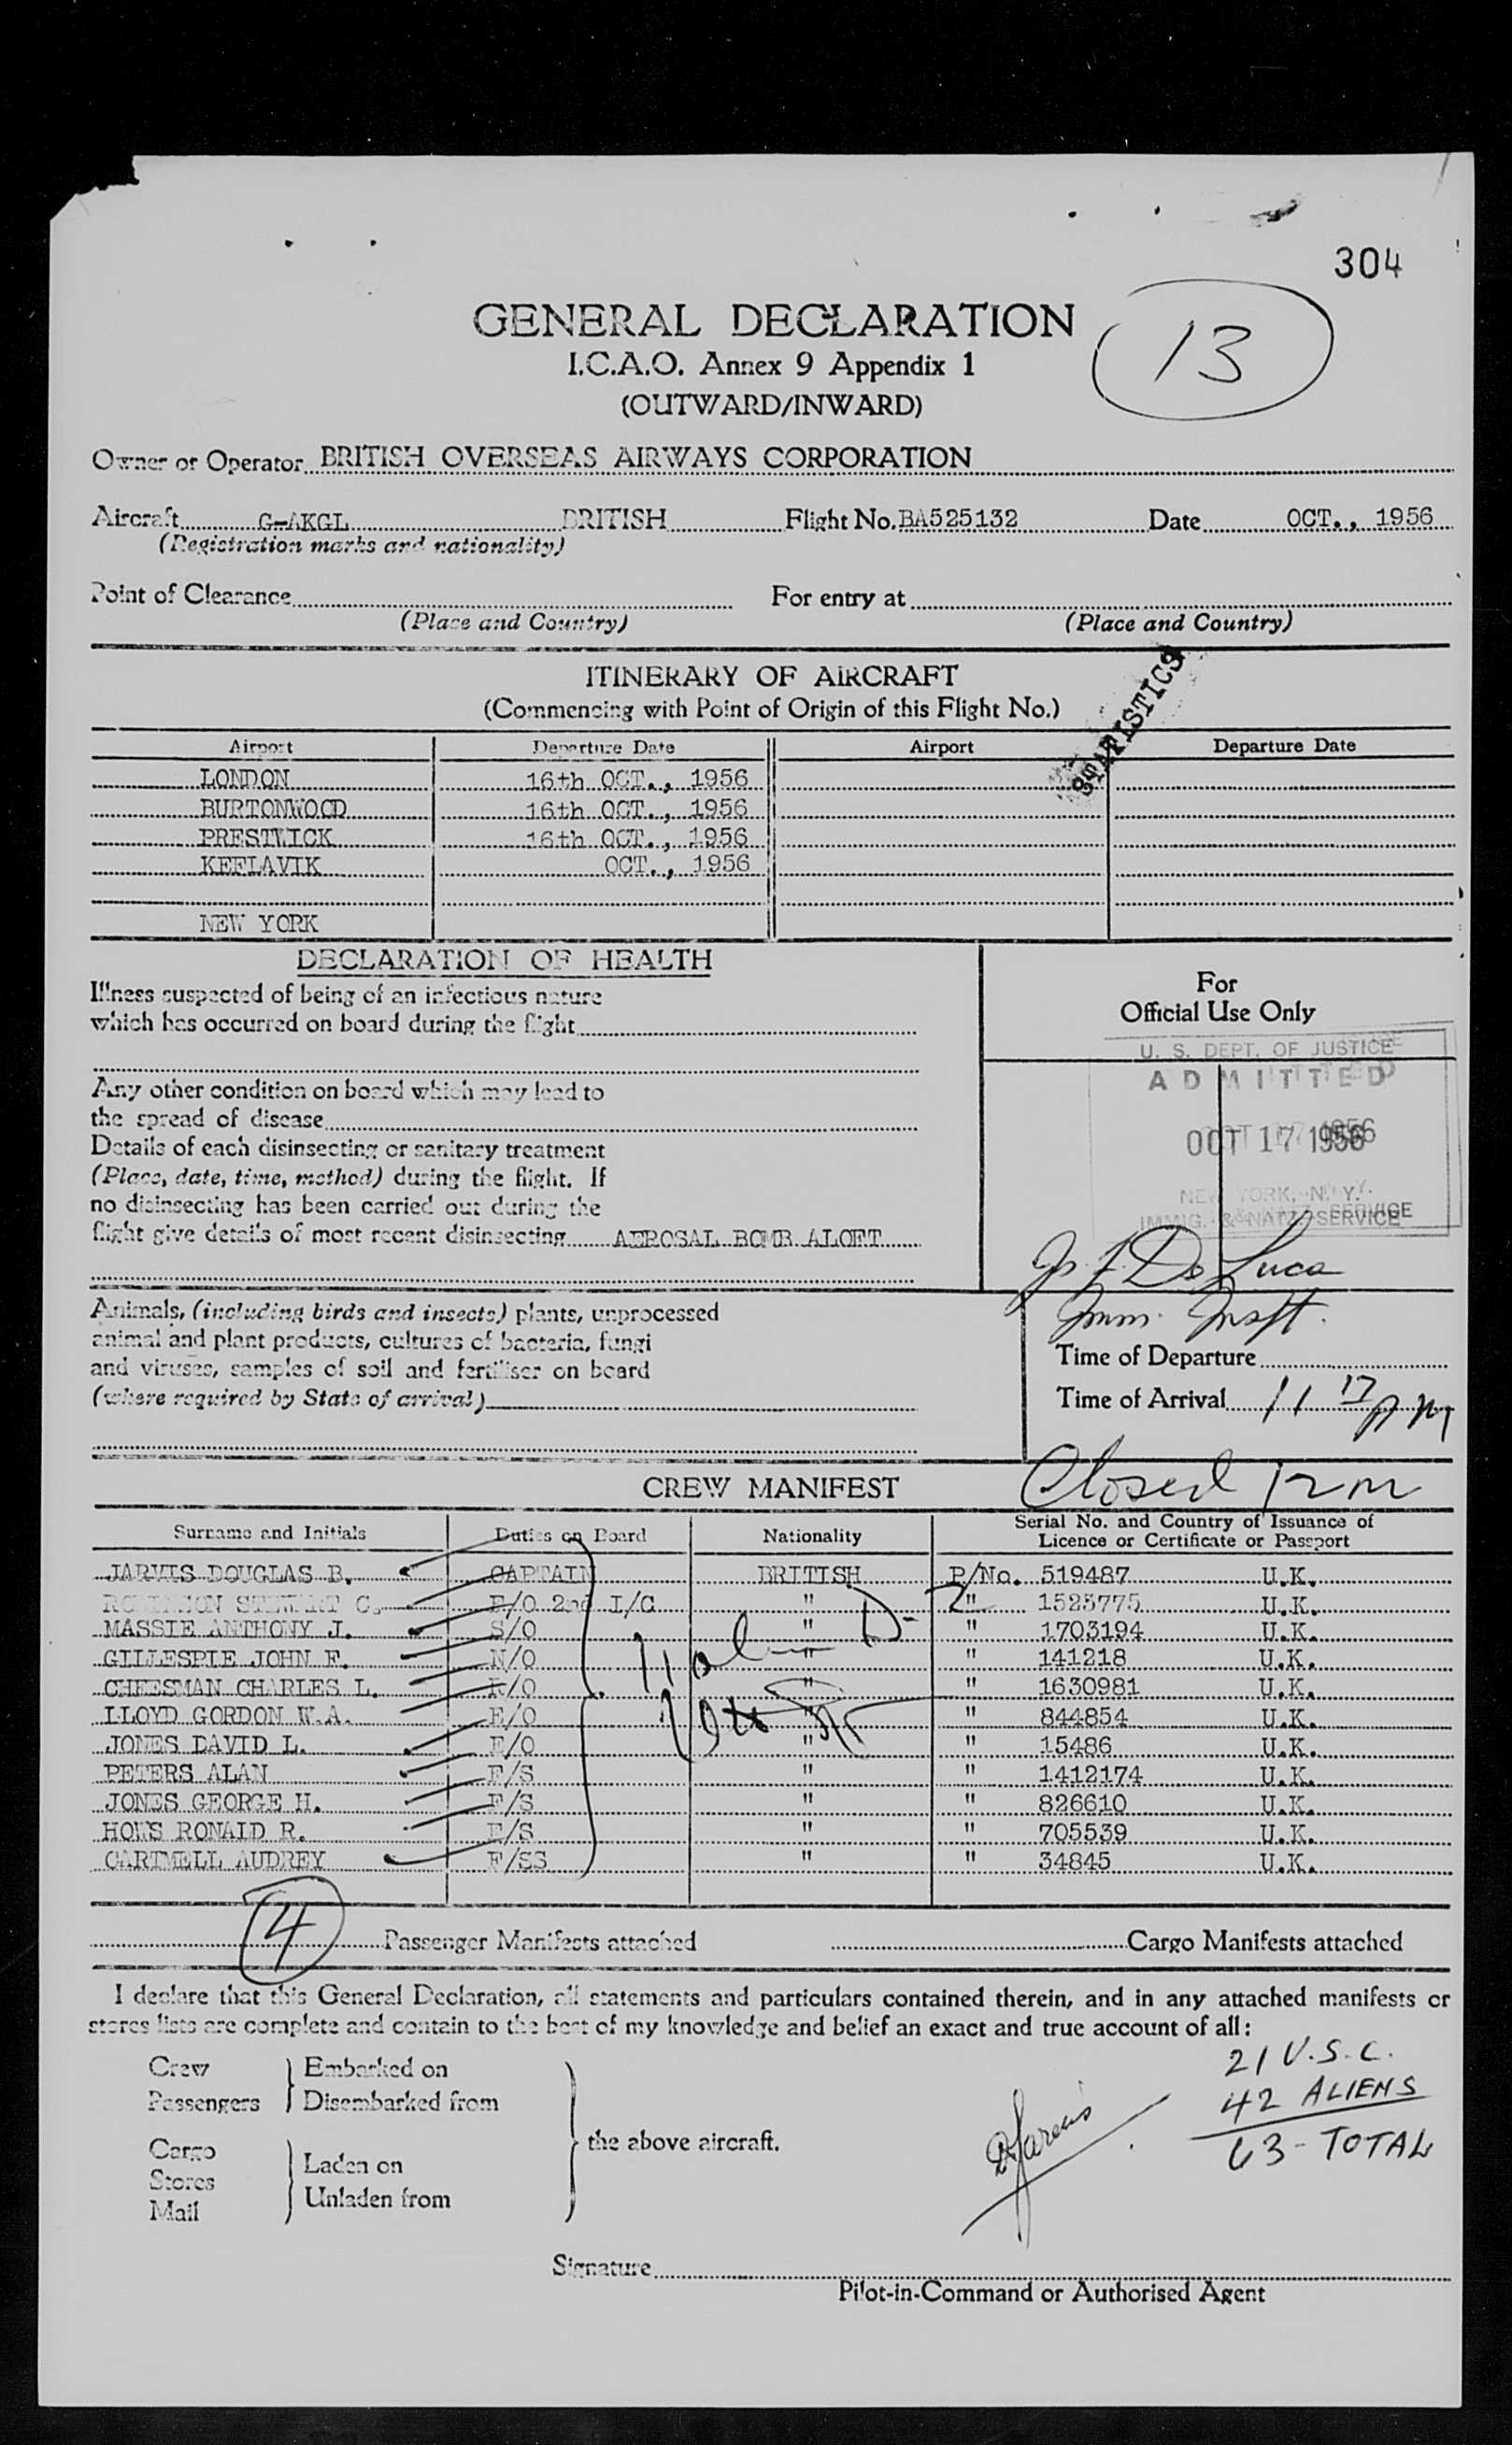 304
GENERAL DECLARATION
13
I.C.A.O. Annex 9 Appendix 1
(OUTWARD/INWARD)
Owner or Operator BRITISH OVERSEAS AIRWAYS CORPORATION
Aircraft G-AKGL BRITISH Flight No. BA525132 Date OCT., 1956
(Registration marks and nationality)
Point of Clearance For entry at
(Place and Country) (Place and Country)
STATISTICS
ITINERARY OF AIRCRAFT
(Commencing with Point of Origin of this Flight No.)
Airport Departure Date Airport Departure Date
LONDON 16th OCT., 1956
BURTONWOOD 16th OCT., 1956
PRESTWICK 16th OCT., 1956
KEFLAVIK OCT., 1956
NEW YORK
DECLARATION OF HEALTH
Illness suspected of being of an infectious nature
which has occurred on board during the flight
Any other condition on board which may lead to
the spread of disease
Details of each disinsecting or sanitary treatment
(Place, date, time, method) during the flight. If
no disinsecting has been carried out during the
flight give details of most recent disinsecting AEROSAL BOMB ALOFT
For
Official Use Only
U. S. DEPT. OF JUSTICE
ADMITTED
OCT 17 1956
NEW YORK, N. Y.
IMMIG. & NATZ. SERVICE
De Luca
Imm. Inspt.
Animals, (including birds and insects) plants, unprocessed
animal and plant products, cultures of bacteria, fungi
and viruses, samples of soil and fertiliser on board
(where required by State of arrival)
Time of Departure
Time of Arrival 11 17 PM
CREW MANIFEST
Closed 12 m
Surname and Initials Duties on Board Nationality Serial No. and Country of Issuance of
Licence or Certificate or Passport
JARVIS DOUGLAS B. CAPTAIN BRITISH P/No. 519487 U.K.
ROBINSON STEWART C. F/O 2nd I/C " " 1523775 U.K.
MASSIE ANTHONY J. S/O " " 1703194 U.K.
GILLESPIE JOHN F. N/O " " 141218 U.K.
CHEESMAN CHARLES L. R/O " " 1630981 U.K.
LLOYD GORDON W.A. E/O " " 844854 U.K.
JONES DAVID L. E/O " " 15486 U.K.
PETERS ALAN F/S " " 1412174 U.K.
JONES GEORGE H. F/S " " 826610 U.K.
HOWS RONALD R. F/S " " 705539 U.K.
CARTMELL AUDREY F/SS " " 34845 U.K.
4 Passenger Manifests attached Cargo Manifests attached
I declare that this General Declaration, all statements and particulars contained therein, and in any attached manifests or
stores lists are complete and contain to the best of my knowledge and belief an exact and true account of all:
Crew Embarked on
Passengers Disembarked from
Cargo Laden on
Stores Unladen from
Mail
the above aircraft.
D Jarvis
21 U.S.C.
42 ALIENS
63 - TOTAL
Signature
Pilot-in-Command or Authorised Agent